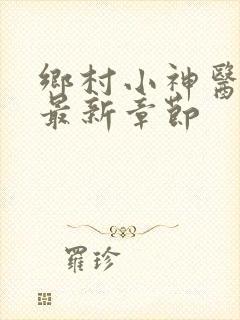 鄉村小神醫
最新章節
羅珍